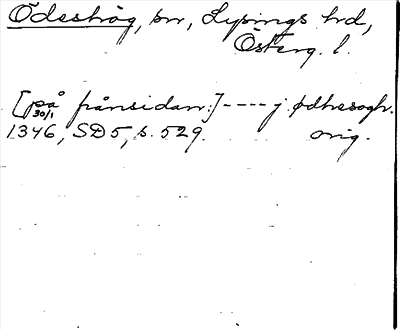 Ödeshög, sn, Lysings hd,
Österg. l.
[på frånsidan:] ---- j ødhesogh.
30/1
1346, SD5, s. 529. orig.